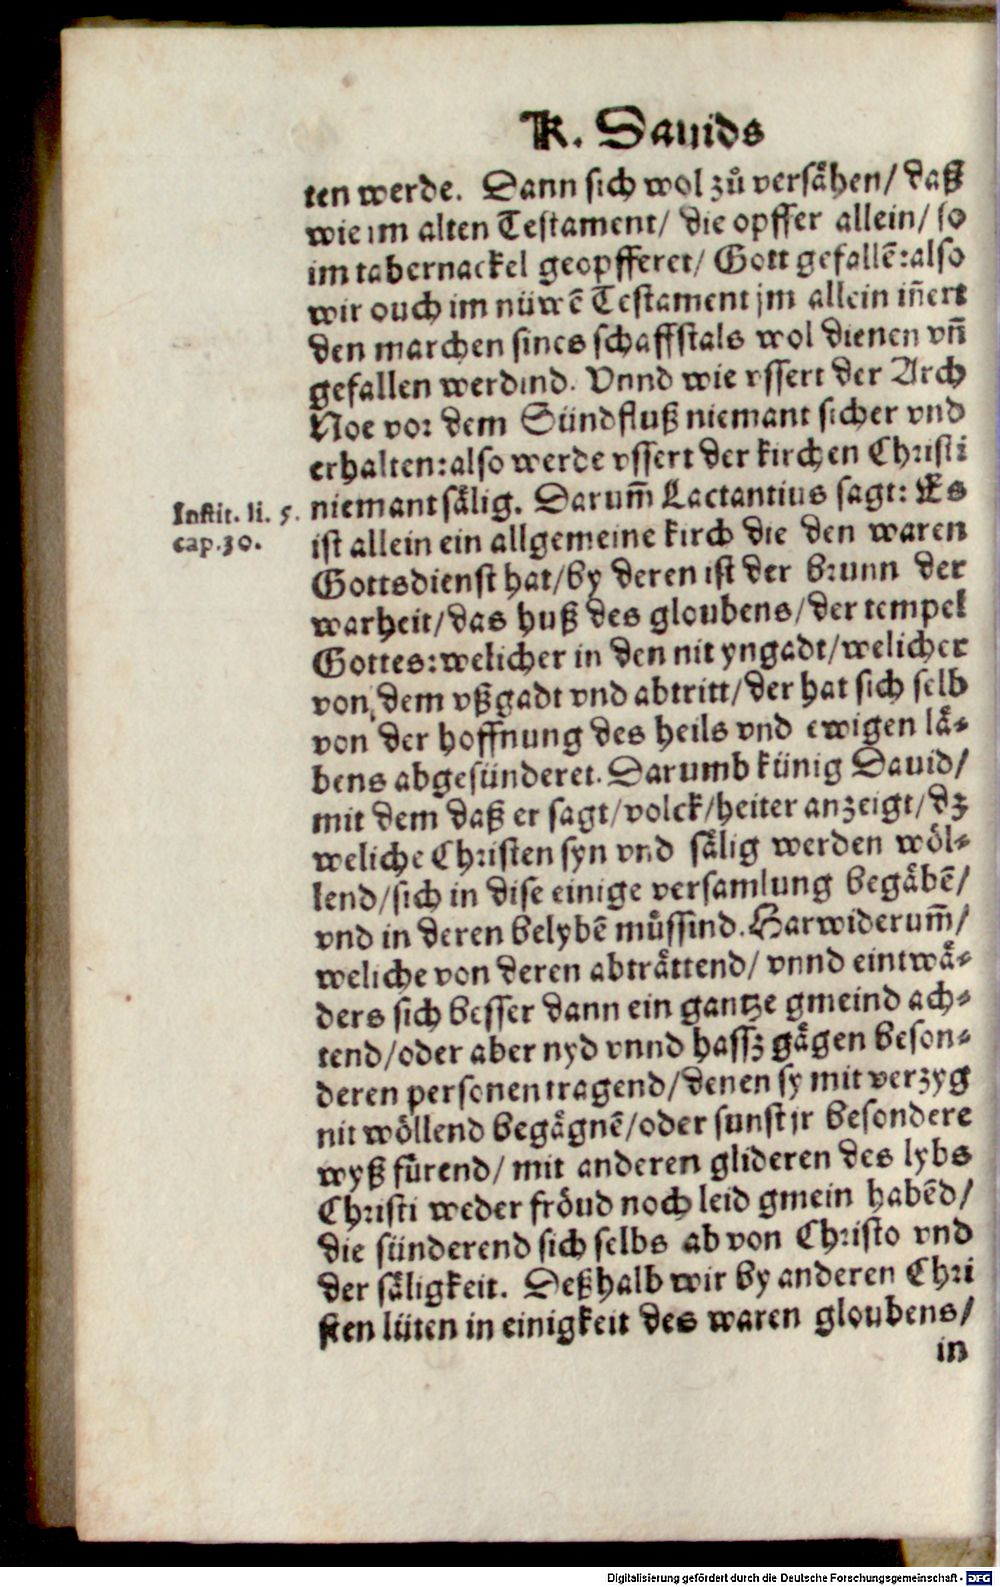 K. Dauids
ten werde. Dann sich wol zů versåhen/ daß
wie im alten Testament/ die opffer allein/ so
im tabernackel geopfferet/ Gott gefallē: also
wir ouch im nüwē Testament jm allein iñert
den marchen sines schaffstals wol dienen vñ
gefallen werdind. Vnnd wie vssert der Arch
Noe vor dem Sündfluß niemant sicher vnd
erhalten: also werde vssert der kirchen Christi
Instit. li. 5.
cap. 30.
niemant sålig. Darum̃ Lactantius sagt: Es
ist allein ein allgemeine kirch die den waren
Gottsdienst hat/ by deren ist der brunn der
warheit/ das huß des gloubens/ der tempel
Gottes: welicher in den nit yngadt/ welicher
von dem vßgadt vnd abtritt/ der hat sich selb
von der hoffnung des heils vnd ewigen lå-
bens abgesünderet. Darumb künig Dauid/
mit dem daß er sagt/ volck/ heiter anzeigt/ dz
weliche Christen syn vnd sålig werden wöl-
lend/ sich in dise einige versamlung begåbē/
vnd in deren belybē müssind. Harwiderum̃/
weliche von deren abtråttend/ vnnd eintwå-
ders sich besser dann ein gantze gmeind ach-
tend/ oder aber nyd vnnd hassz gågen beson-
deren personen tragend/ denen sy mit verzyg
nit wöllend begågnē/ oder sunst jr besondere
wyß fürend/ mit anderen glideren des lybs
Christi weder fröud noch leid gmein habēd/
die sünderend sich selbs ab von Christo vnd
der såligkeit. Deßhalb wir by anderen Chri
sten lüten in einigkeit des waren gloubens/
in
Digitalisierung gefördert durch die Deutsche Forschungsgemeinschaft - DFG